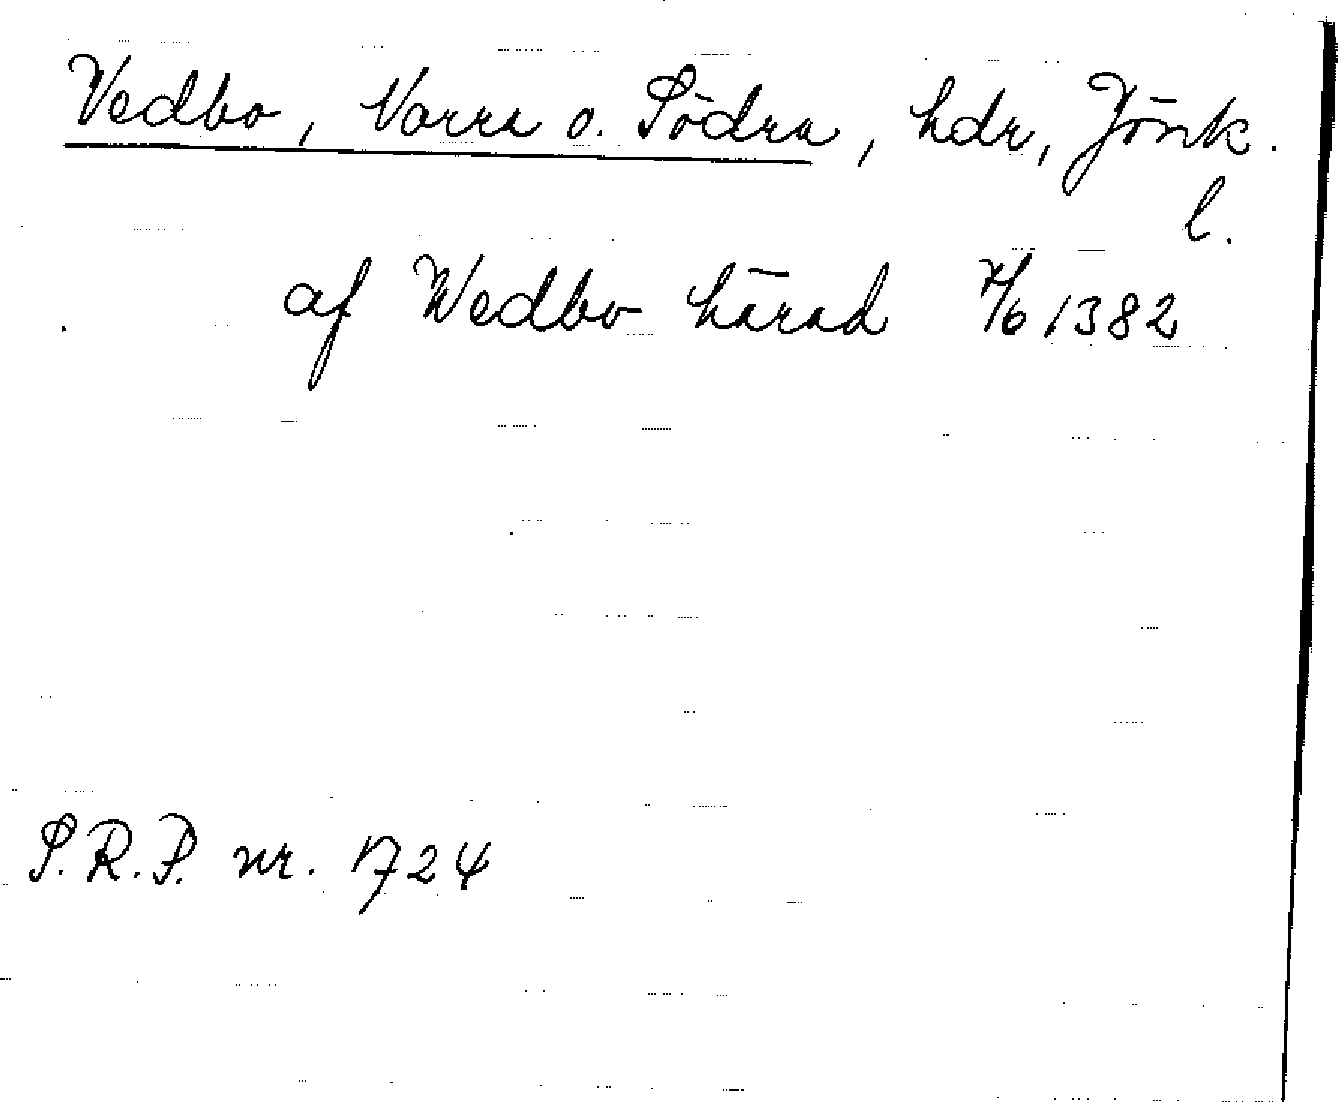 Vedbo, Norra o. Södra, hdr, Jönk.
l.
af Wedbo härad 7/6 1382
S.R.P. nr. 1724